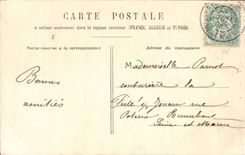 CARTE POSTALE
à utiliser seulement dans le régime intérieur (FRANCE, ALGÉRIE et TUNISIE)
Partie réservée à la correspondance
Adresse du Destinataire
Mademoiselle Parrot
couturière la
Ferté s/s Jouarre rue
Seine et Marne
Bonnes
amitiés